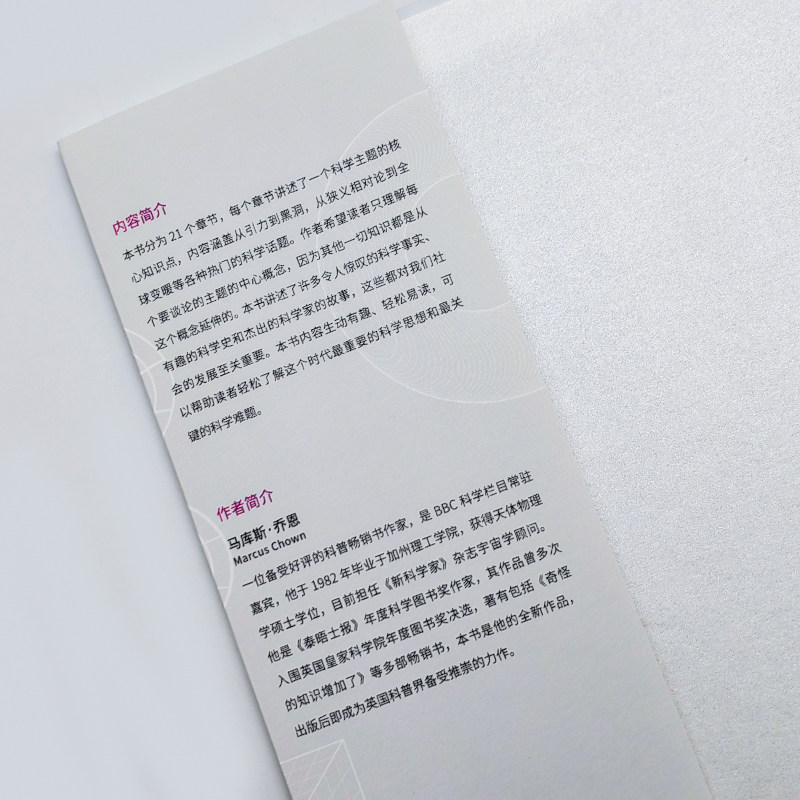 内容简介
本书分为 21 个章节，每个章节讲述了一个科学主题的核
心知识点，内容涵盖从引力到黑洞，从狭义相对论到全
球变暖等各种热门的科学话题。作者希望读者只理解每
个要谈论的主题的中心概念，因为其他一切知识都是从
这个概念延伸的。本书讲述了许多令人惊叹的科学事实、
有趣的科学史和杰出的科学家的故事，这些都对我们社
会的发展至关重要。本书内容生动有趣、轻松易读，可
以帮助读者轻松了解这个时代最重要的科学思想和最关
键的科学难题。
作者简介
马库斯·乔恩
Marcus Chown
一位备受好评的科普畅销书作家，是 BBC 科学栏目常驻
嘉宾，他于 1982 年毕业于加州理工学院，获得天体物理
学硕士学位，目前担任《新科学家》杂志宇宙学顾问。
他是《泰晤士报》年度科学图书奖作家，其作品曾多次
入围英国皇家科学院年度图书奖决选，著有包括《奇怪
的知识增加了》等多部畅销书，本书是他的全新作品，
出版后即成为英国科普界备受推崇的力作。